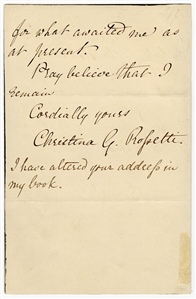 for what awaited me as
at present.
Pray believe that I
remain
Cordially yours
Christina G. Rossetti.
I have altered your address in
my book.